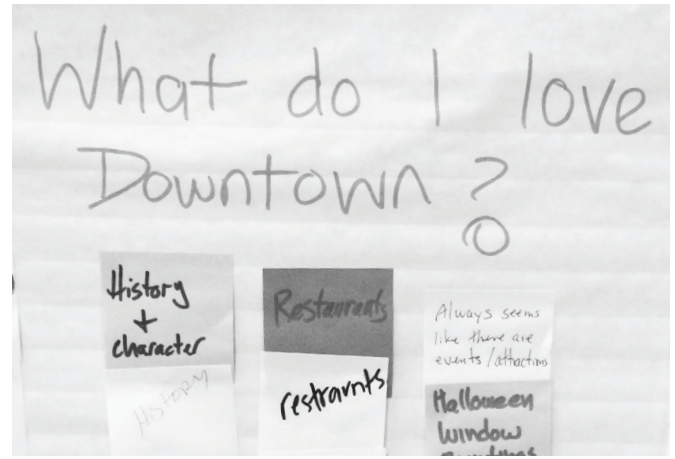 What do I love
Downtown?
History
+
character
History
Restaurants
restraunts
Always seems
like there are
events/attractions
Halloween
Window